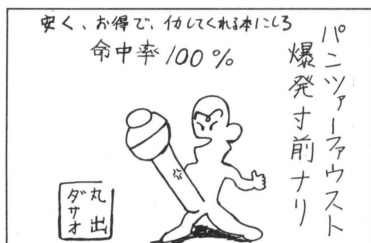 安く、お得で、イカしてくれる本にしろ
命中率100%
パンツァーファウスト
爆発寸前ナリ
丸出
ダサオ